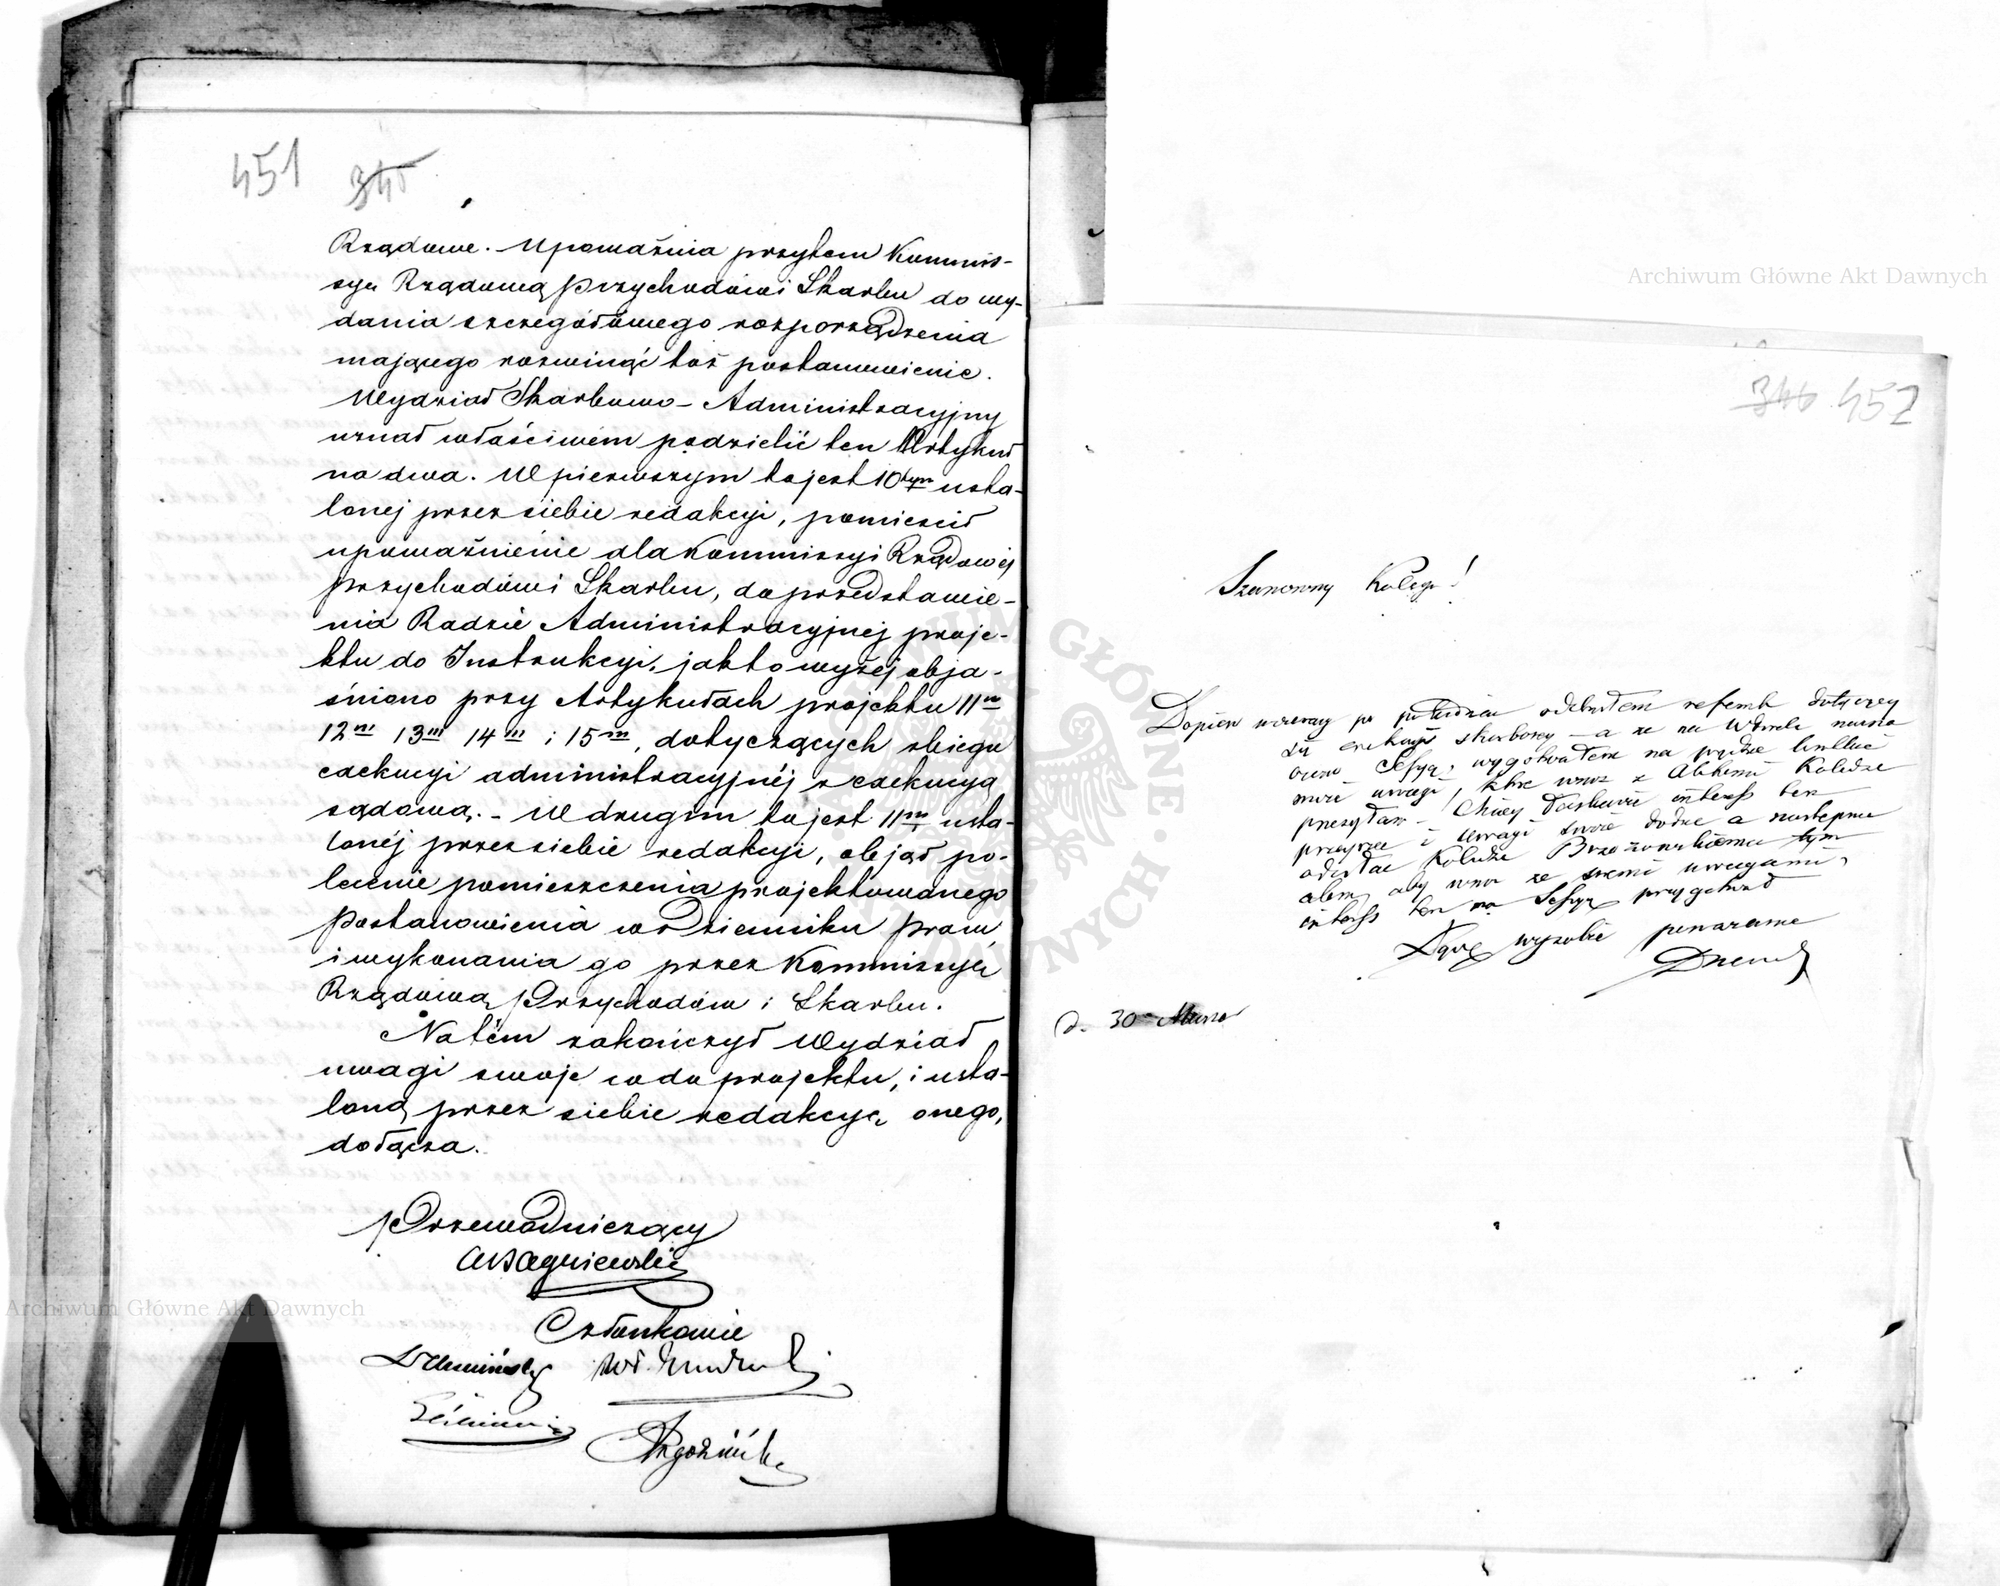 451 345
Rządowe. Upoważnia przytem Kommis-
syą Rządową Przychodów i Skarbu do wy-
dania szczegółowego rozporządzenia
mającego rozwinąć toż postanowienie.
Wydział Skarbowo-Administracyjny
uznał właściwem podzielić ten Artykuł
na dwa. W pierwszym to jest 10tym usta-
lonej przez siebie redakcyi, pomieścił
upoważnienie dla Kommissyi Rządowej
Przychodów i Skarbu, do przedstawie-
nia Radzie Administracyjnej proje-
ktu do Instrukcyi, jak to wyżej obja-
śniono przy Artykułach projektu 11m
12m 13m 14m i 15m, dotyczących zbiegu
exekucyi administracyjnéj z exekucyą
sądową. - W drugim to jest 11m usta-
lonéj przez siebie redakcyi, objął po-
lecenie pomieszczenia projektowanego
Postanowienia w Dzienniku praw
i wykonania go przez Kommissyę
Rządową Przychodów i Skarbu.
Na tém zakończył Wydział
uwagi swoje co do projektu, i usta-
loną przez siebie redakcyę onego,
dołącza.
Przewodniczący
Członkowie
346 452
Szanowny Kolego!
Dopiero wczoraj po południu odebrałem referat dotyczący
się exekucyi skarbowej – a że na
Sessyą, wygotowałem na prędce
moje uwagi, które wraz z Kolegi
przesyłam – Chciej łaskawie interess ten
przejrzeć i uwagi swoje dodać a następnie
odesłać Koledze Brzozowskiemu tym
celem, aby wraz ze swemi uwagami,
interess ten na Sessyę przygotował
Łączę wysokie poważanie
d. 30 Marca
Archiwum Główne Akt Dawnych
Archiwum Główne Akt Dawnych